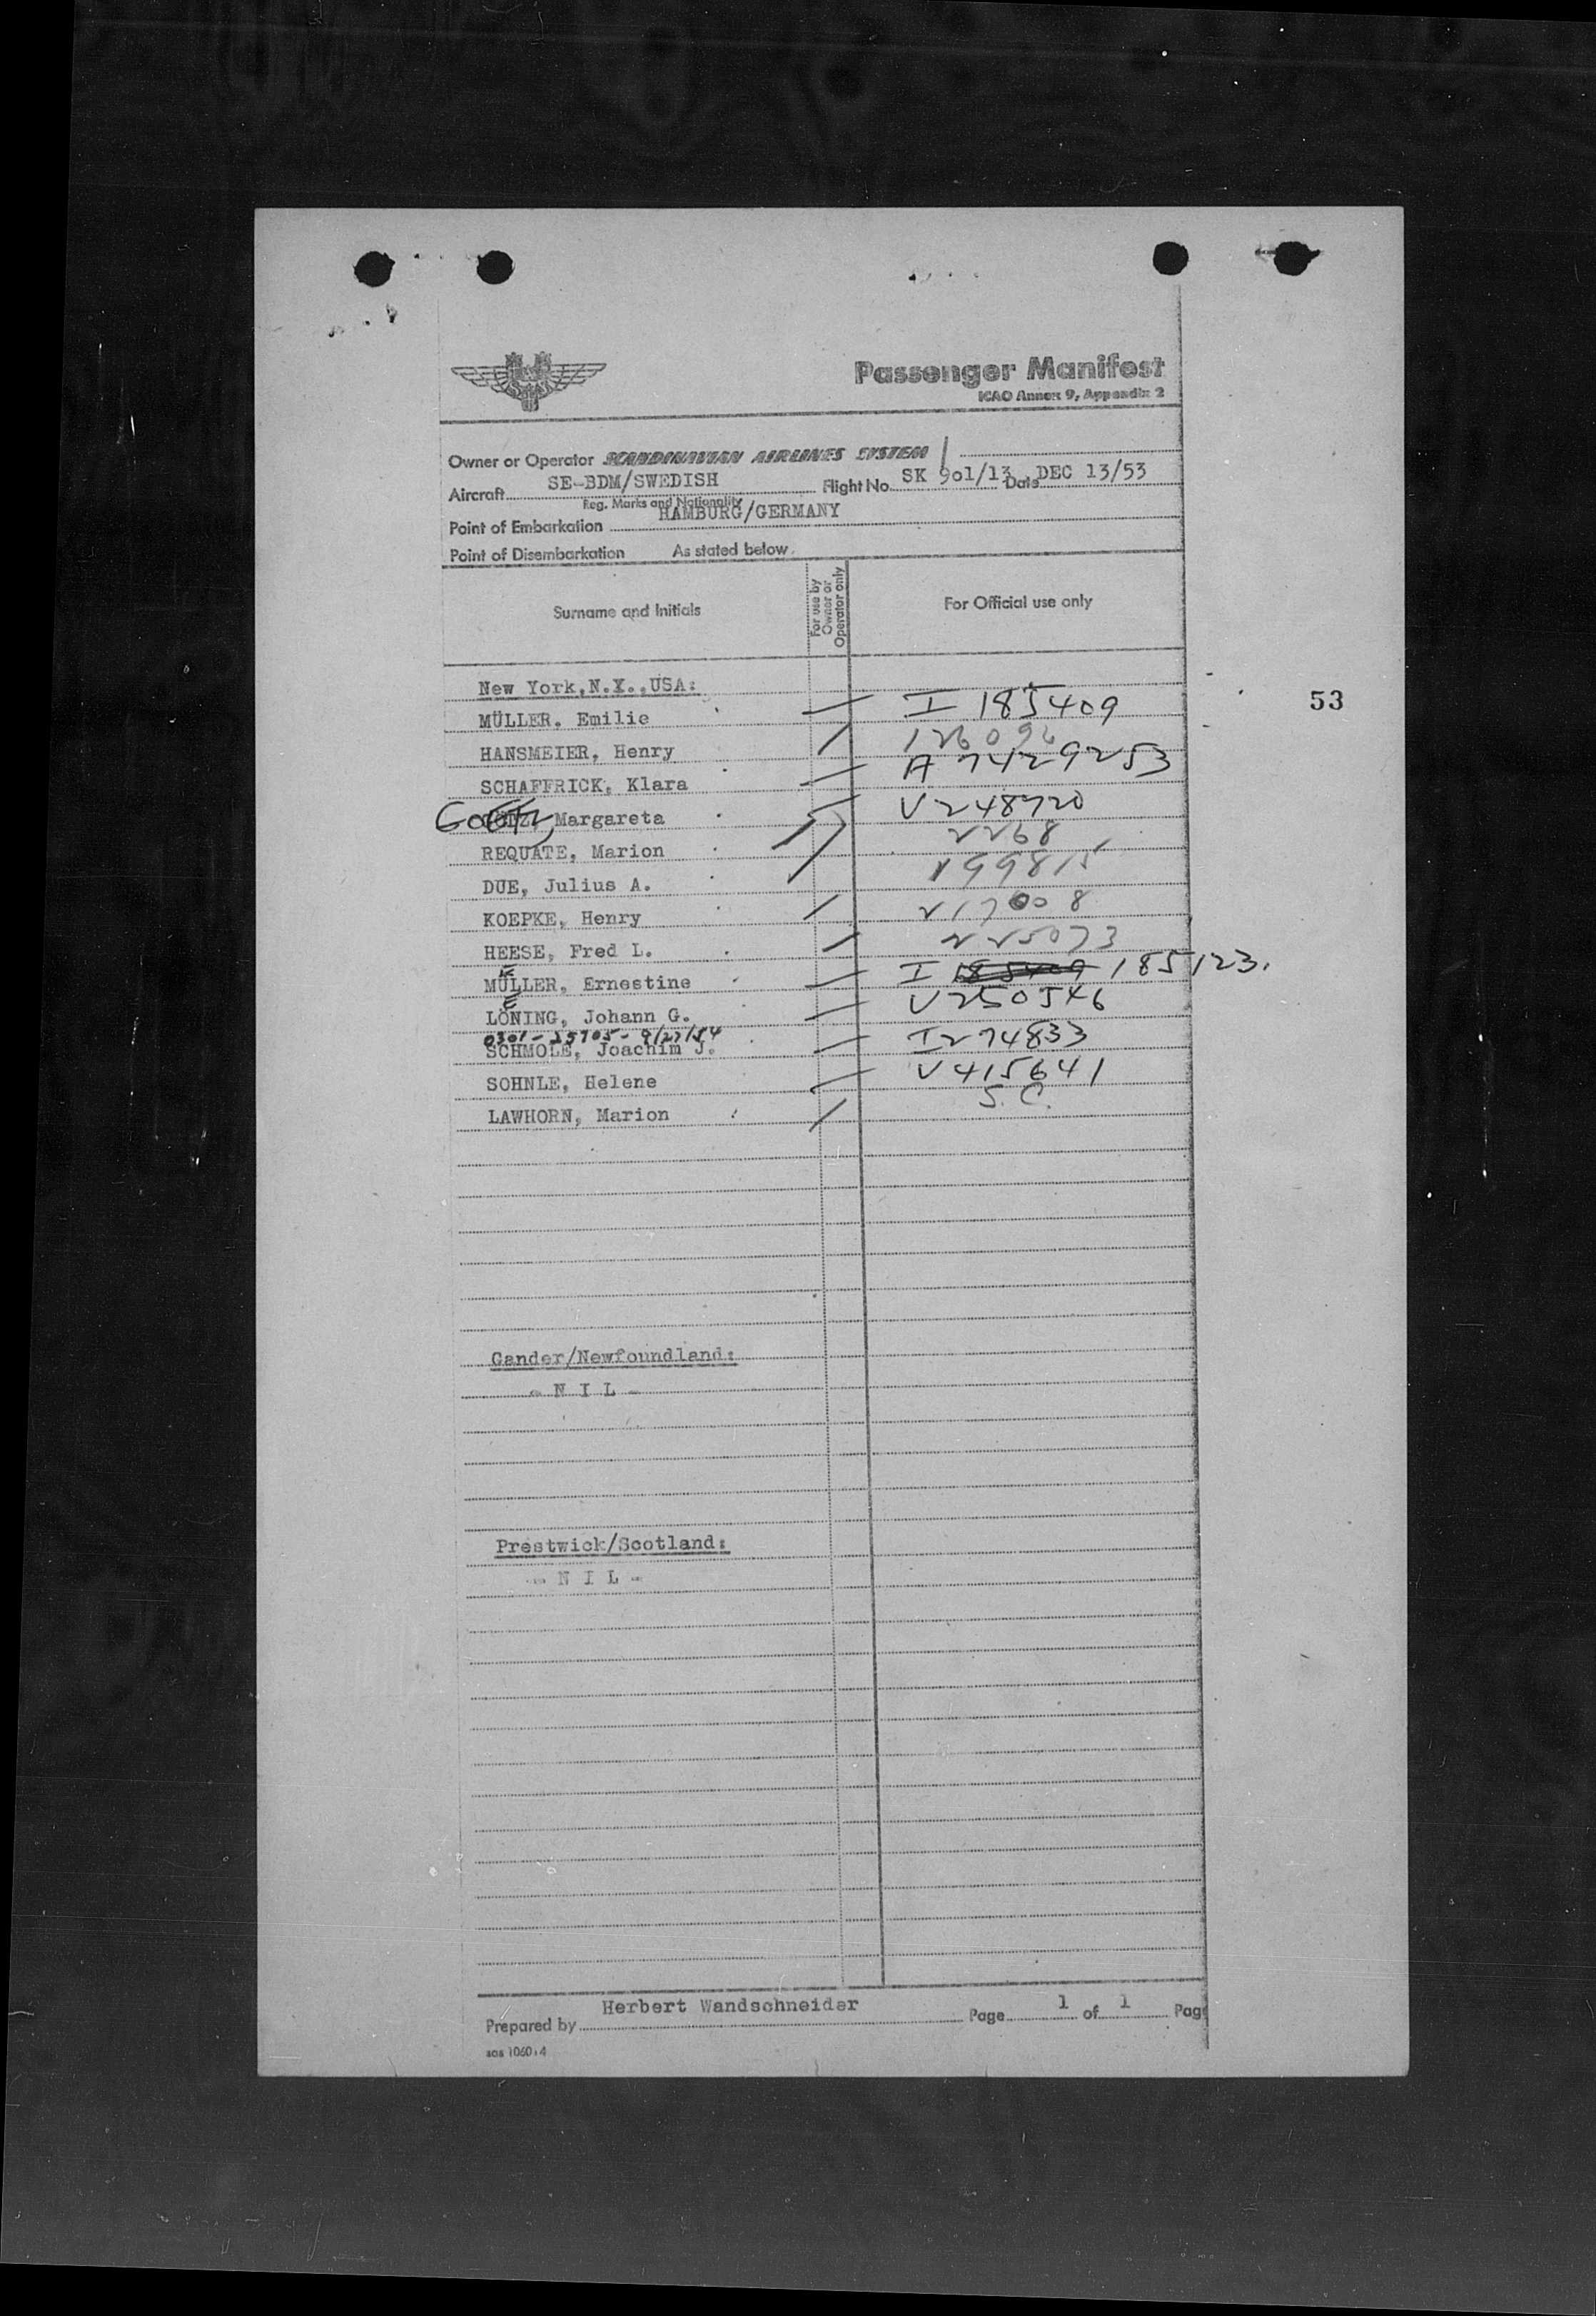 Passenger Manifest
ICAO Annex 9, Appendix 2
Owner or Operator SCANDINAVIAN AIRLINES SYSTEM
Aircraft SE-BDM/SWEDISH Flight No. SK 901/13 Date DEC 13/53
Reg. Marks and Nationality
Point of Embarkation HAMBURG/GERMANY
Point of Disembarkation As stated below
Surname and Initials For use by Owner or Operator only For Official use only
New York,N.Y.,USA:
53
MÜLLER, Emilie I 185409
HANSMEIER, Henry 126096
SCHAFFRICK, Klara A 7429253
Goetz, Margareta V 248720
REQUATE, Marion 2268
DUE, Julius A. 199815
KOEPKE, Henry 217008
HEESE, Fred L. 225073
MÜLLER, Ernestine I 185409 185123.
E
LÖNING, Johann G. V250546
0301-55705-9/27/54
SCHMOLE, Joachim J. I274833
SOHNLE, Helene V415641
LAWHORN, Marion S.C.
Gander/Newfoundland:
- N I L -
Prestwick/Scotland:
- N I L -
Prepared by Herbert Wandschneider Page 1 of 1 Pag
sas 1060:4